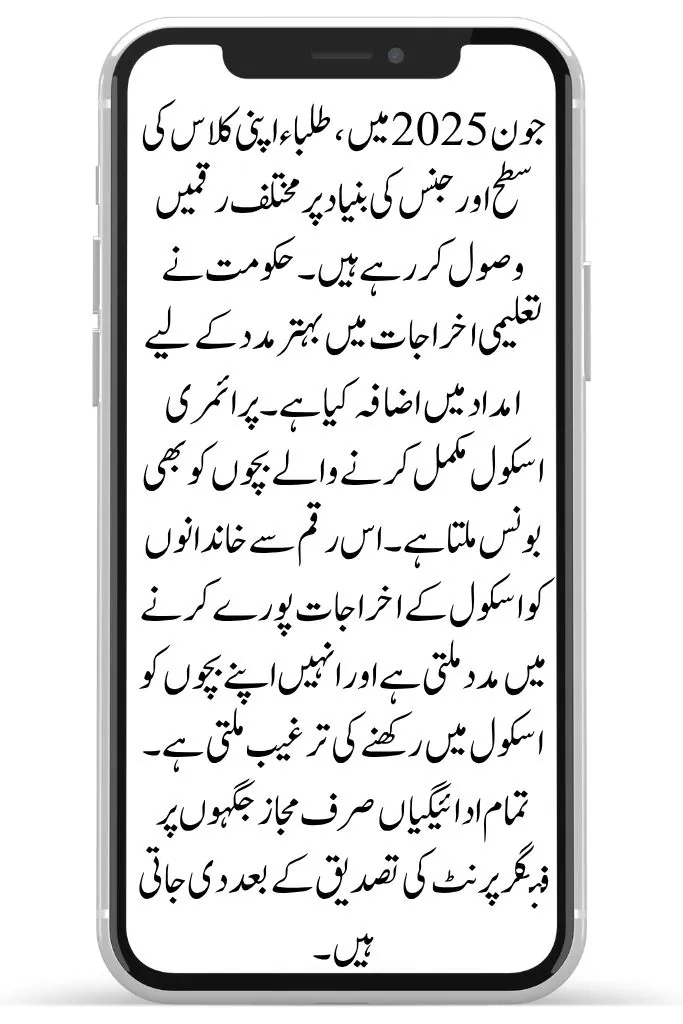 جون 2025 میں، طلباء اپنی کلاس کی
سطح اور جنس کی بنیاد پر مختلف رقمیں
وصول کر رہے ہیں۔ حکومت نے
تعلیمی اخراجات میں بہتر مدد کے لیے
امداد میں اضافہ کیا ہے۔ پرائمری
اسکول مکمل کرنے والے بچوں کو بھی
بونس ملتا ہے۔ اس رقم سے خاندانوں
کو اسکول کے اخراجات پورے کرنے
میں مدد ملتی ہے اور انہیں اپنے بچوں کو
اسکول میں رکھنے کی ترغیب ملتی ہے۔
تمام ادائیگیاں صرف مجاز جگہوں پر
فنگر پرنٹ کی تصدیق کے بعد دی جاتی
ہیں۔